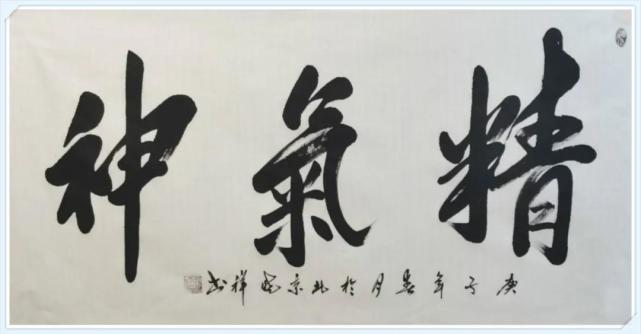 精氣神
庚子年春月於北京祥书